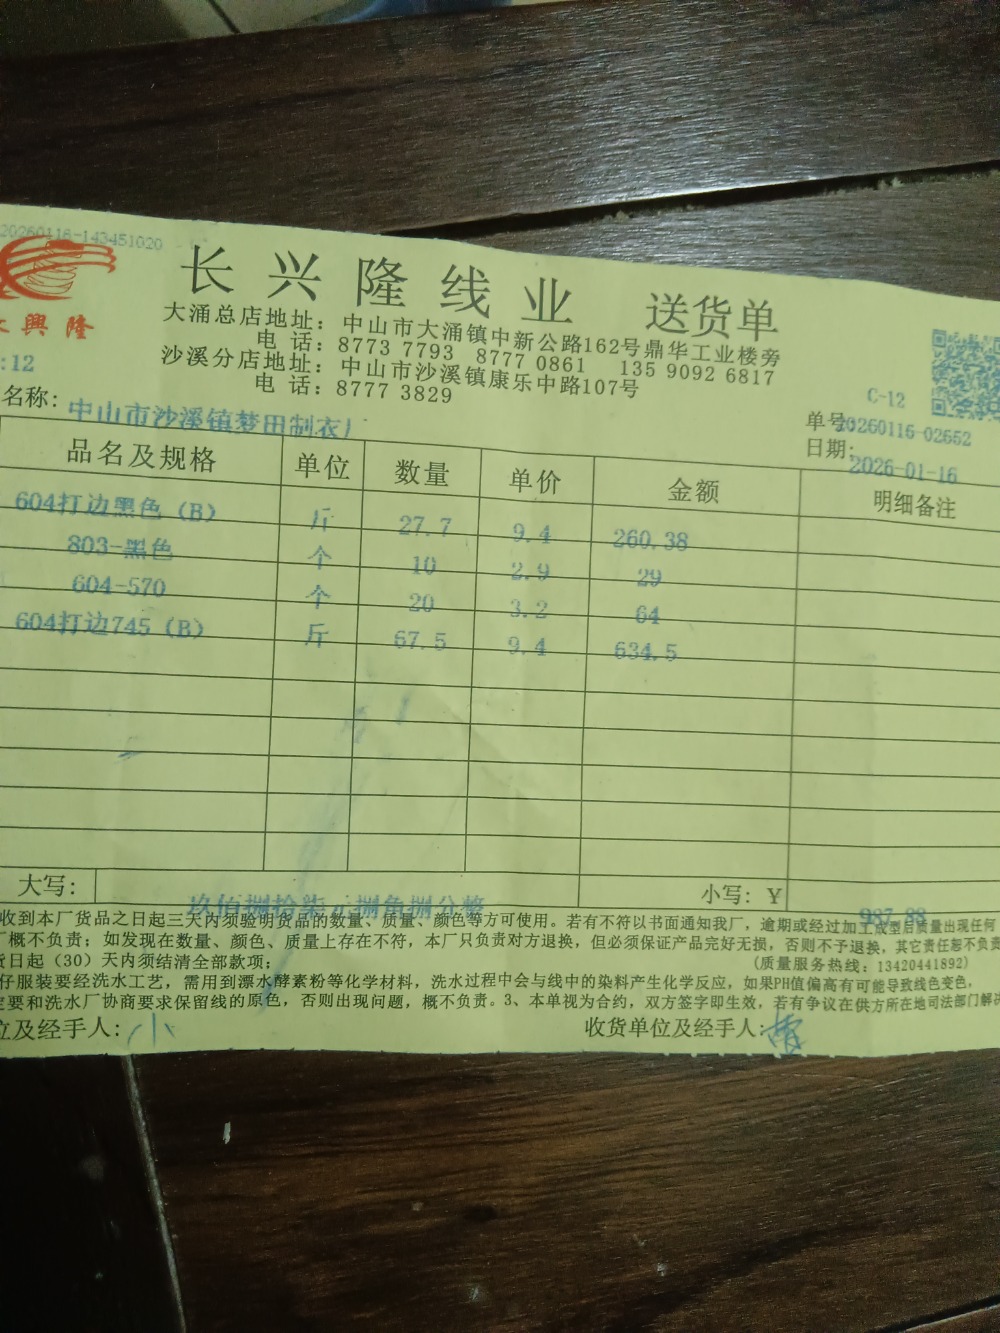 20260116-143451020
長興隆
:12
长兴隆线业 送货单
大涌总店地址：中山市大涌镇中新公路162号鼎华工业楼旁
电 话：8773 7793 8777 0861 135 9092 6817
沙溪分店地址：中山市沙溪镇康乐中路107号
电 话：8777 3829
C-12
名称：中山市沙溪镇梦田制衣厂
单号：20260116-02652
日期：2026-01-16
品名及规格 单位 数量 单价 金额 明细备注
604打边黑色（B） 斤 27.7 9.4 260.38
803-黑色 个 10 2.9 29
604-570 个 20 3.2 64
604打边745（B） 斤 67.5 9.4 634.5
大写：玖佰捌拾柒元捌角捌分整 小写：￥ 987.88
收到本厂货品之日起三天内须验明货品的数量、质量、颜色等方可使用。若有不符以书面通知我厂，逾期或经过加工成型后质量出现任何
厂概不负责；如发现在数量、颜色、质量上存在不符，本厂只负责对方退换，但必须保证产品完好无损，否则不予退换，其它责任恕不负责
货日起（30）天内须结清全部款项； （质量服务热线：13420441892）
仔服装要经洗水工艺，需用到漂水酵素粉等化学材料，洗水过程中会与线中的染料产生化学反应，如果PH值偏高有可能导致线色变色，
定要和洗水厂协商要求保留线的原色，否则出现问题，概不负责。3、本单视为合约，双方签字即生效，若有争议在供方所在地司法部门解决
位及经手人：小 收货单位及经手人：